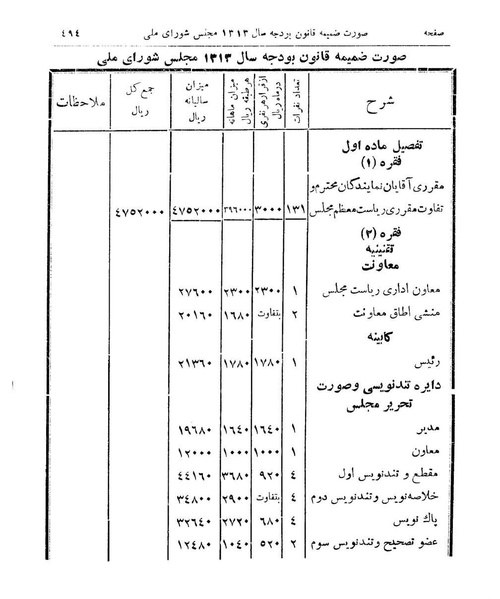 صفحه صورت ضمیمه قانون بودجه سال ۱۳۱۳ مجلس شورای ملی ٤٩٤
صورت ضمیمه قانون بودجه سال ۱۳۱۳ مجلس شورای ملی
شرح تعداد نفرات از قرار هر نفری در ماه ریال میزان ماهانه هر طبقه ریال میزان سالیانه ریال جمع کل ریال ملاحظات
تفصیل ماده اول
فقره (۱)
مقرری آقایان نمایندگان محترم و
تفاوت مقرری ریاست معظم مجلس ۱۳۱ ۳۰۰۰ ۳۹٦۰۰۰ ٤۷٥۲۰۰۰ ٤۷٥۲۰۰۰
فقره (۲)
تقنینیه
معاونت
معاون اداری ریاست مجلس ۱ ۲۳۰۰ ۲۳۰۰ ۲۷٦۰۰
منشی اطاق معاونت ۲ بتفاوت ۱٦۸۰ ۲۰۱٦۰
کابینه
رئیس ۱ ۱۷۸۰ ۱۷۸۰ ۲۱۳٦۰
دایره تندنویسی وصورت
تحریر مجلس
مدیر ۱ ۱٦٤۰ ۱٦٤۰ ۱۹٦۸۰
معاون ۱ ۱۰۰۰ ۱۰۰۰ ۱۲۰۰۰
مقطع و تندنویس اول ٤ ۹۲۰ ۳٦۸۰ ٤٤۱٦۰
خلاصه نویس وتندنویس دوم ٤ بتفاوت ۲۹۰۰ ۳٤۸۰۰
پاك نویس ٤ ٦۸۰ ۲۷۲۰ ۳۲٦٤۰
عضو تصحیح وتندنویس سوم ۲ ٥۲۰ ۱۰٤۰ ۱۲٤۸۰